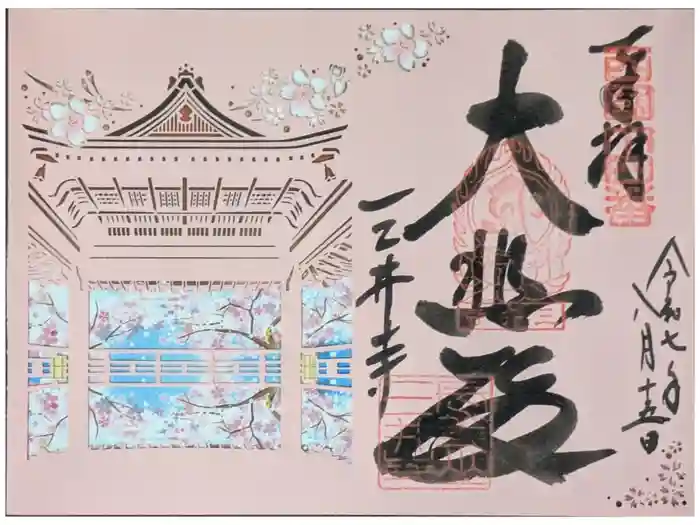 百拝
令和七年
八月十五日
大悲殿
三井寺